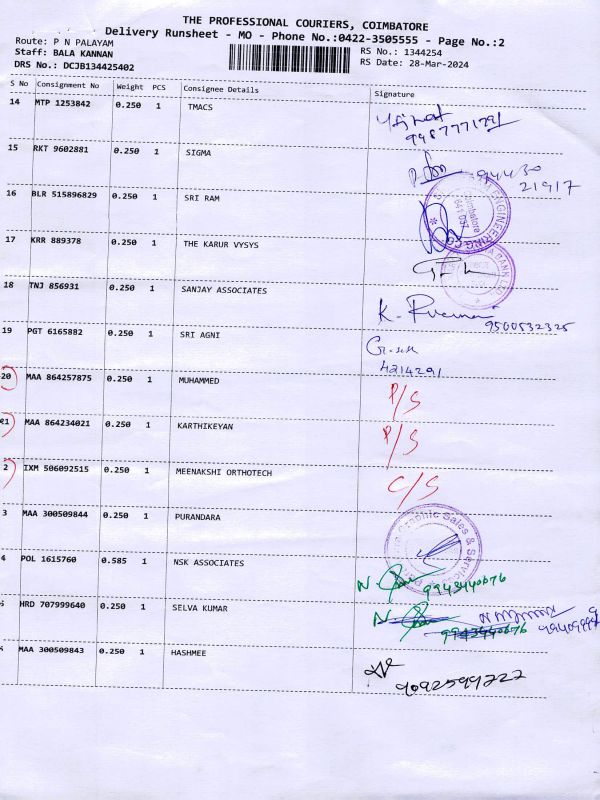 THE PROFESSIONAL COURIERS, COIMBATORE
Delivery Runsheet - MO - Phone No.:0422-3505555 - Page No.:2
Route: P N PALAYAM
RS No.: 1344254
Staff: BALA KANNAN
RS Date: 28-Mar-2024
DRS No.: DCJB134425402
S No Consignment No Weight PCS Consignee Details Signature
14 MTP 1253842 0.250 1 TMACS
15 RKT 9602881 0.250 1 SIGMA
94430
21917
16 BLR 515896829 0.250 1 SRI RAM
ENGINEERING
Coimbatore
641 037
17 KRR 889378 0.250 1 THE KARUR VYSYS
BANK LTD
18 TNJ 856931 0.250 1 SANJAY ASSOCIATES
K.
9500532325
19 PGT 6165882 0.250 1 SRI AGNI
4214291
20 MAA 864257875 0.250 1 MUHAMMED P/S
21 MAA 864234021 0.250 1 KARTHIKEYAN P/S
2 IXM 506092515 0.250 1 MEENAKSHI ORTHOTECH C/S
3 MAA 300509844 0.250 1 PURANDARA
Graphic Sales & Service
4 POL 1615760 0.585 1 NSK ASSOCIATES
N.
9943440676
HRD 707999640 0.250 1 SELVA KUMAR
N.
9943440676
MAA 300509843 0.250 1 HASHMEE
9092599222